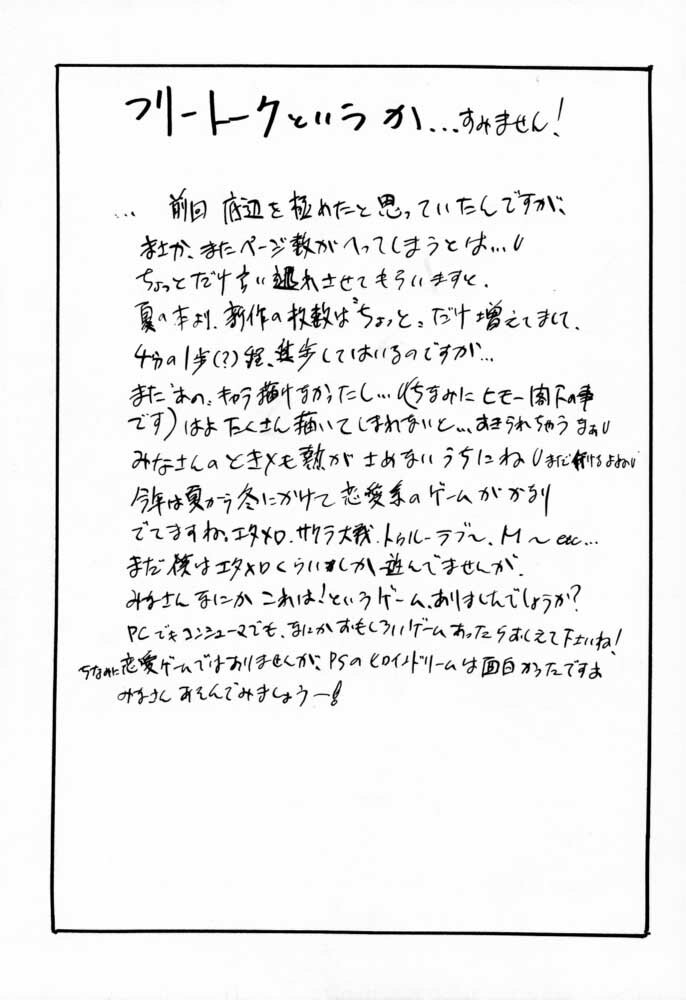 フリートークというか…すみません!
… 前回 底辺を極めたと思っていたんですが、
まさか、またページ数がへってしまうとは…
ちょっとだけ言い逃れさせてもらいますと、
夏の本より、新作の枚数は"ちょっと"だけ増えてまして、
4分の1歩(?)程、進歩してはいるのですが…
また"あの"キャラ描けなかったし…(ちなみにヒモー閣下の事
です)はよ たくさん描いてしまわないと…あきられちゃうなぁ
みなさんのときメモ熱がさめないうちにね まだ行けるよね
今年は夏から冬にかけて恋愛系のゲームがかなり
でてますね。エタメロ、サクラ大戦、トゥルーラブ〜、M〜etc…
まだ僕はエタメロくらいしか遊んでませんが、
みなさんなにか これは!というゲーム、ありましたでしょうか?
PCでもコンシューマでも、なにかおもしろいゲームあったらおしえて下さいね!
ちなみに恋愛ゲームではありませんが、PSのヒロインドリームは面白かったですよ
みなさんあそんでみましょうー!